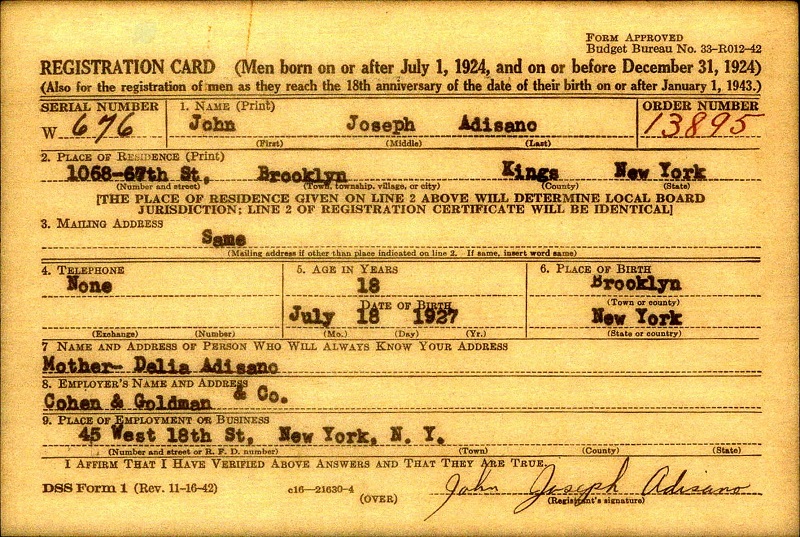 FORM APPROVED
Budget Bureau No. 33-R012-42
REGISTRATION CARD (Men born on or after July 1, 1924, and on or before December 31, 1924)
(Also for the registration of men as they reach the 18th anniversary of the date of their birth on or after January 1, 1943.)
SERIAL NUMBER 1. NAME (Print) ORDER NUMBER
W 676 John Joseph Adisano 13895
(First) (Middle) (Last)
2. PLACE OF RESIDENCE (Print)
1068-67th St, Brooklyn Kings New York
(Number and street) (Town, township, village, or city) (County) (State)
[THE PLACE OF RESIDENCE GIVEN ON LINE 2 ABOVE WILL DETERMINE LOCAL BOARD
JURISDICTION; LINE 2 OF REGISTRATION CERTIFICATE WILL BE IDENTICAL]
3. MAILING ADDRESS
Same
(Mailing address if other than place indicated on line 2. If same, insert word same)
4. TELEPHONE 5. AGE IN YEARS 6. PLACE OF BIRTH
None 18 Brooklyn
DATE OF BIRTH (Town or county)
July 18 1927 New York
(Exchange) (Number) (Mo.) (Day) (Yr.) (State or country)
7 NAME AND ADDRESS OF PERSON WHO WILL ALWAYS KNOW YOUR ADDRESS
Mother- Delia Adisano
8. EMPLOYER'S NAME AND ADDRESS
Cohen & Goldman & Co.
9. PLACE OF EMPLOYMENT OR BUSINESS
45 West 18th St, New York, N. Y.
(Number and street or R. F. D. number) (Town) (County) (State)
I AFFIRM THAT I HAVE VERIFIED ABOVE ANSWERS AND THAT THEY ARE TRUE.
DSS Form 1 (Rev. 11-16-42) c16-21630-4 John Joseph Adisano
(OVER) (Registrant's signature)